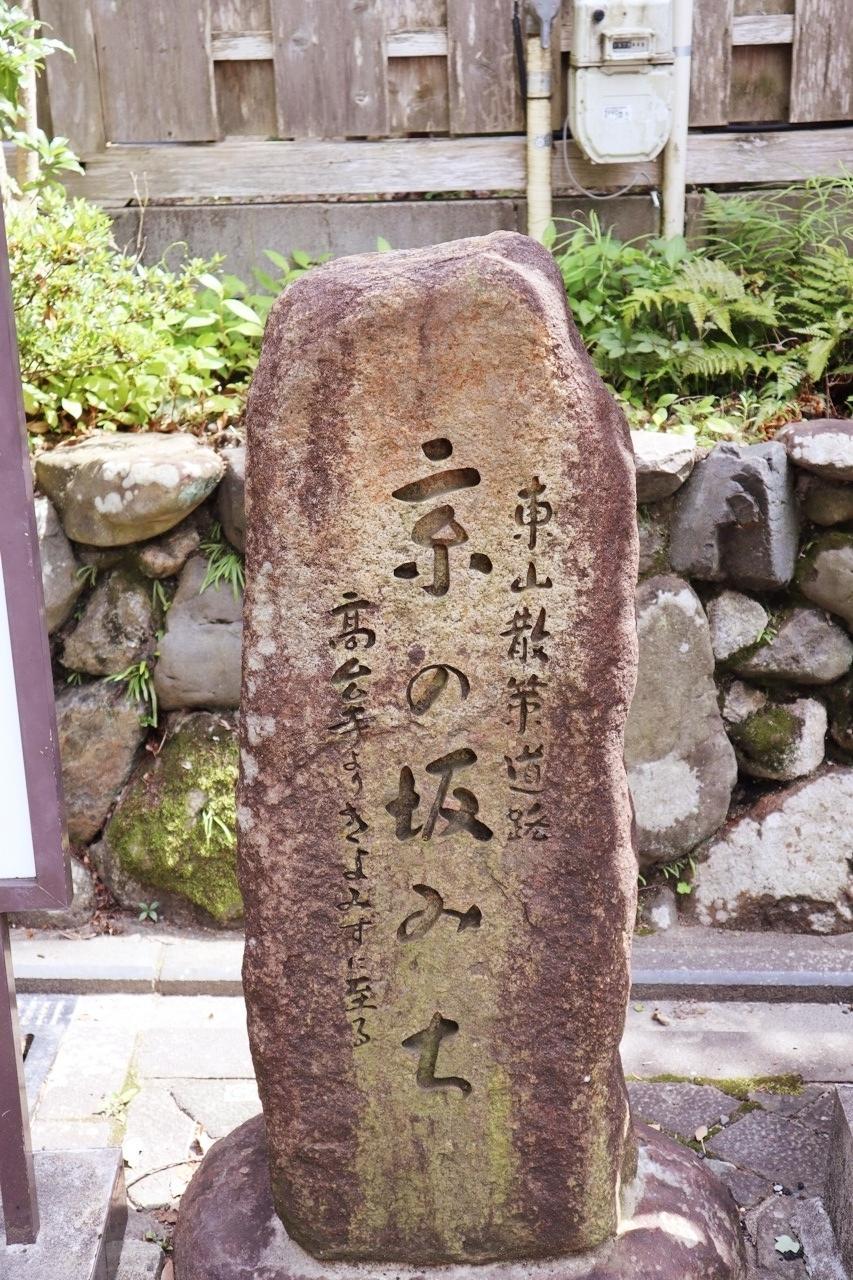 東山散策道路
京の坂みち
高台寺よりきよみずに至る